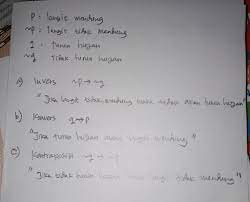 p : langit mendung
~p : langit tidak mendung
q : turun hujan
~q : tidak turun hujan
a) Invers ~p → ~q
"Jika langit tidak mendung maka tidak akan turun hujan"
b) Konvers q → p
"Jika turun hujan maka langit mendung"
c) Kontraposisi ~q → ~p
"Jika tidak turun hujan maka langit tidak mendung"